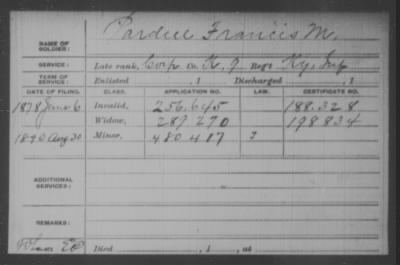 Pardue Francis M.
NAME OF SOLDIER:
SERVICE: Late rank, Corp Co. K, 9 Reg't Ky. Inf
TERM OF SERVICE: Enlisted , 1 Discharged , 1
DATE OF FILING. CLASS. APPLICATION NO. LAW. CERTIFICATE NO.
1878 June 6 Invalid, 256.645 188.328
Widow, 289 270 198834
1890 Aug 30 Minor, 480 417
ADDITIONAL SERVICES:
REMARKS:
Died , 1 , at